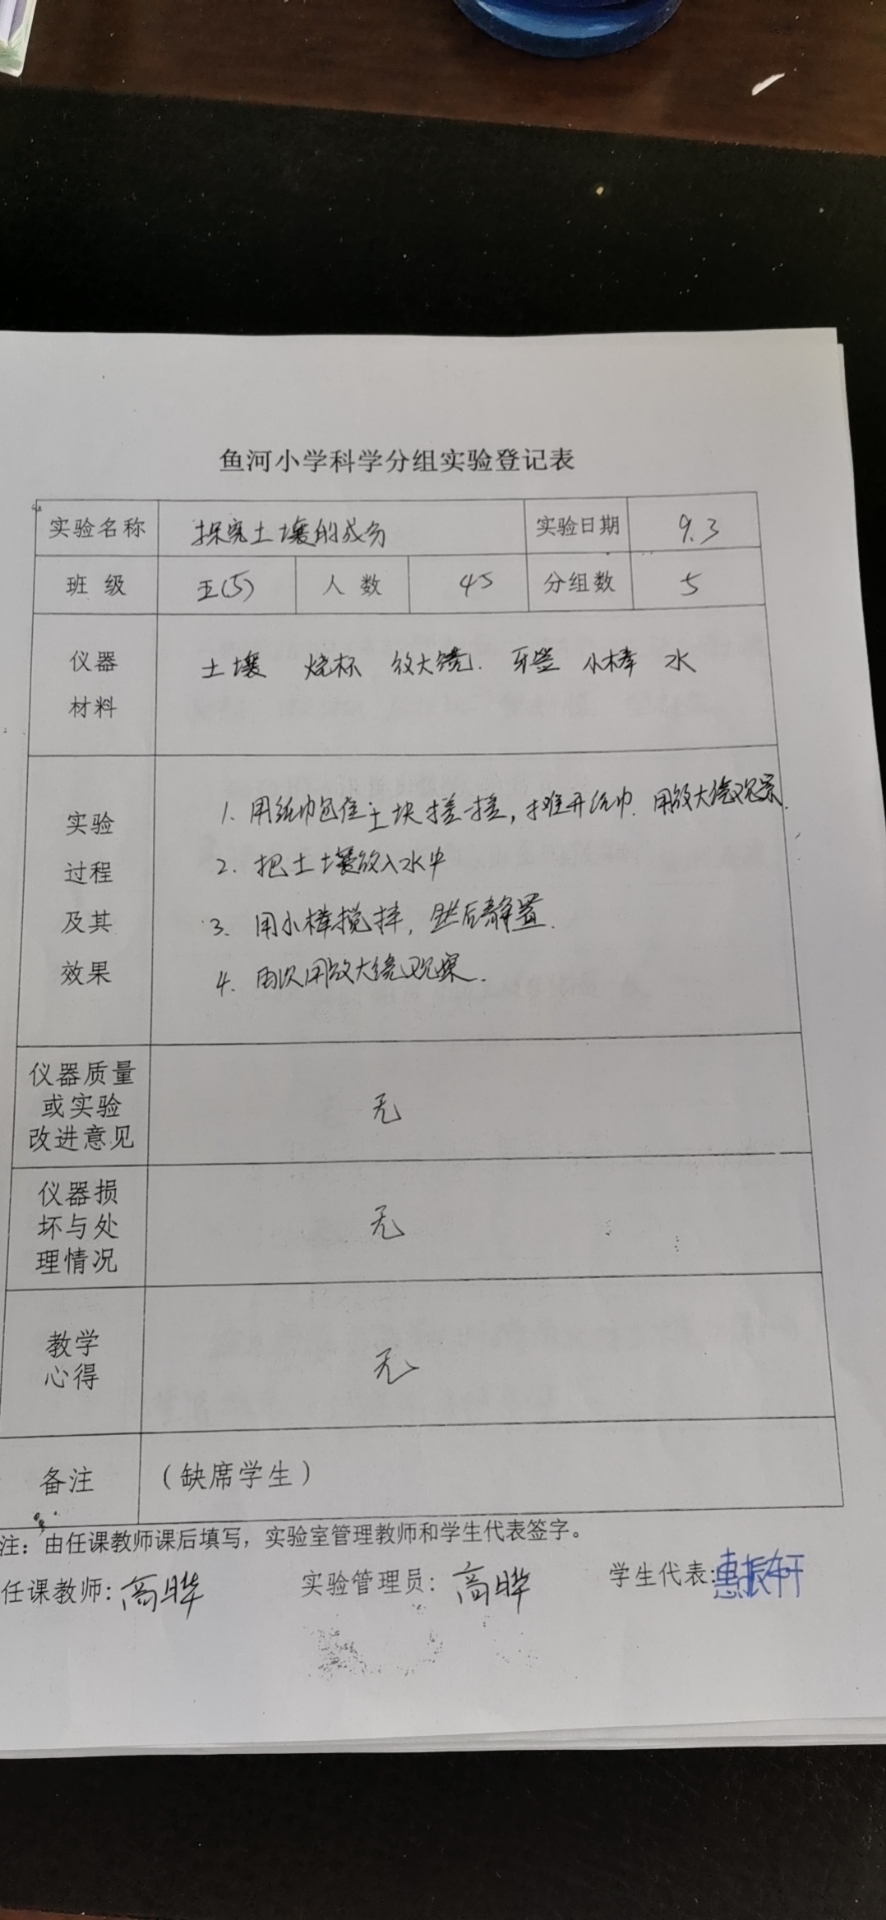 鱼河小学科学分组实验登记表
实验名称 探究土壤的成分 实验日期 9.3
班 级 五(5) 人 数 45 分组数 5
仪器 土壤 烧杯 放大镜. 牙签 小棒 水
材料
实验 1. 用纸巾包住土块搓一搓,摊开纸巾. 用放大镜观察.
过程 2. 把土壤放入水中
及其 3. 用小棒搅拌, 然后静置.
效果 4. 再次用放大镜观察.
仪器质量
或实验 无
改进意见
仪器损
坏与处 无
理情况
教学
心得 无
备注 (缺席学生)
注: 由任课教师课后填写, 实验室管理教师和学生代表签字。
任课教师: 高晔 实验管理员: 高晔 学生代表: 惠振轩